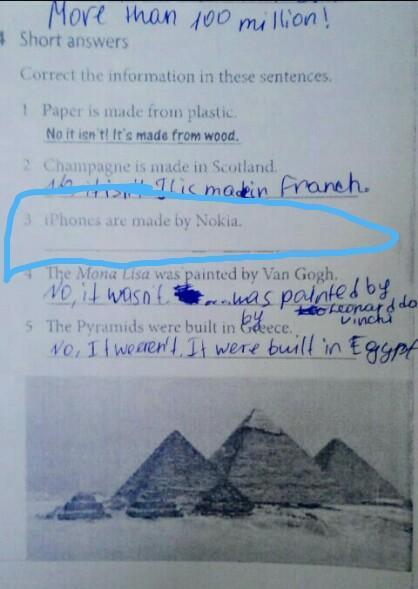 More than 100 million!
4 Short answers
Correct the information in these sentences.
1 Paper is made from plastic.
No it isn't! It's made from wood.
2 Champagne is made in Scotland.
No it isn't. It is made in Franch.
3 iPhones are made by Nokia.
4 The Mona Lisa was painted by Van Gogh.
No, it wasn't. was painted by
by Leonarddo
Vinchi
5 The Pyramids were built in Greece.
No, It weeren't. It were built in Egypt